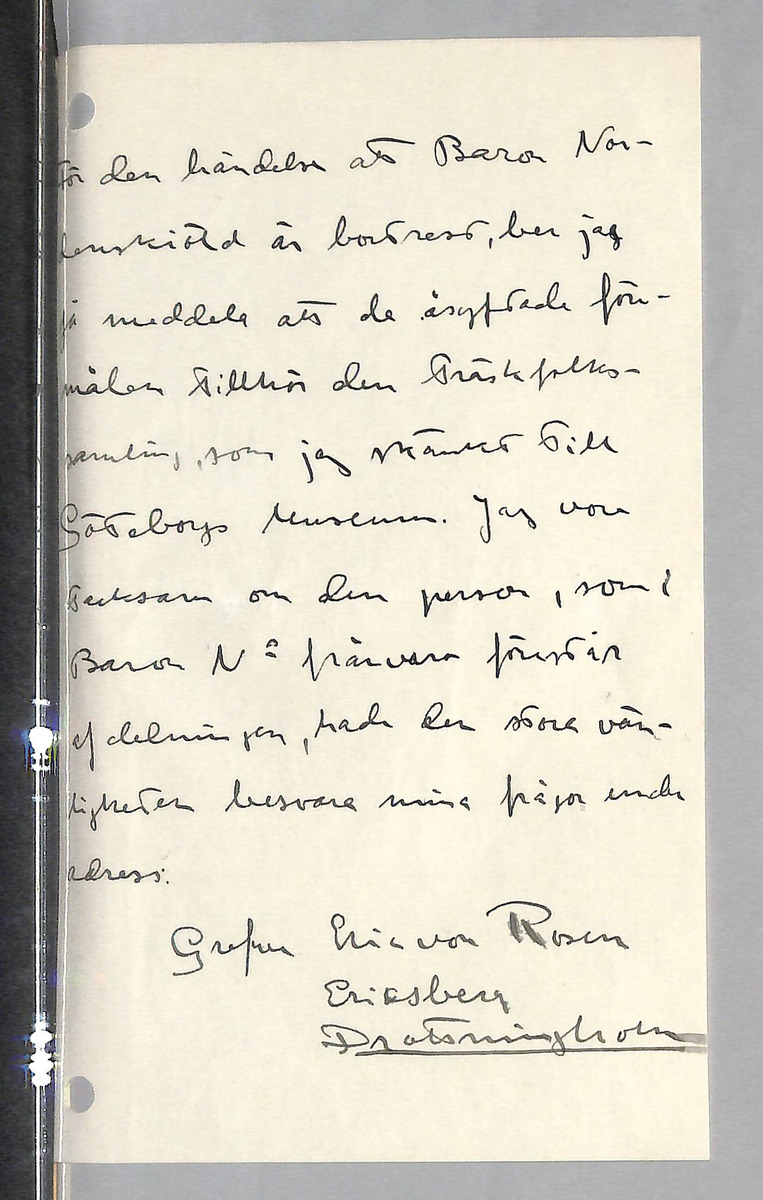 för den händelse att Baron Nor-
denskiöld är bortrest, ber jag
få meddela att de åsyftade före-
målen tillhör den Träskfolks-
samling, som jag skänkt till
Göteborgs Museum. Jag vore
tacksam om den person, som i
Baron N:s frånvaro förestår
afdelningen, hade den stora vän-
ligheten besvara mina frågor under
adress:
Grefve Eric von Rosen
Eriksberg
Drottningholm